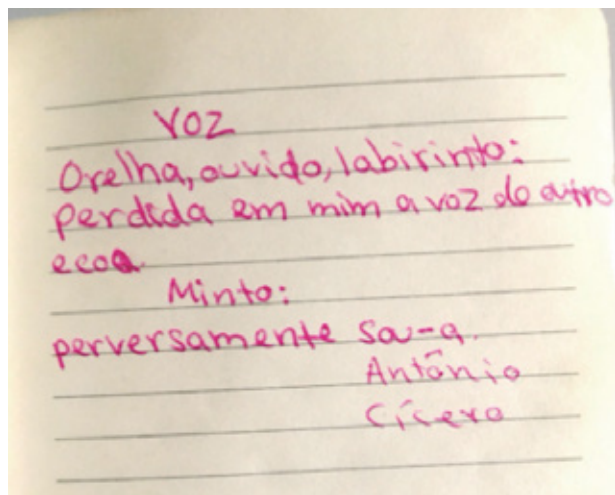 VOZ
Orelha, ouvido, labirinto:
perdida em mim a voz do outro
ecoa.
Minto:
perversamente sou-a.
Antônio
Cícero